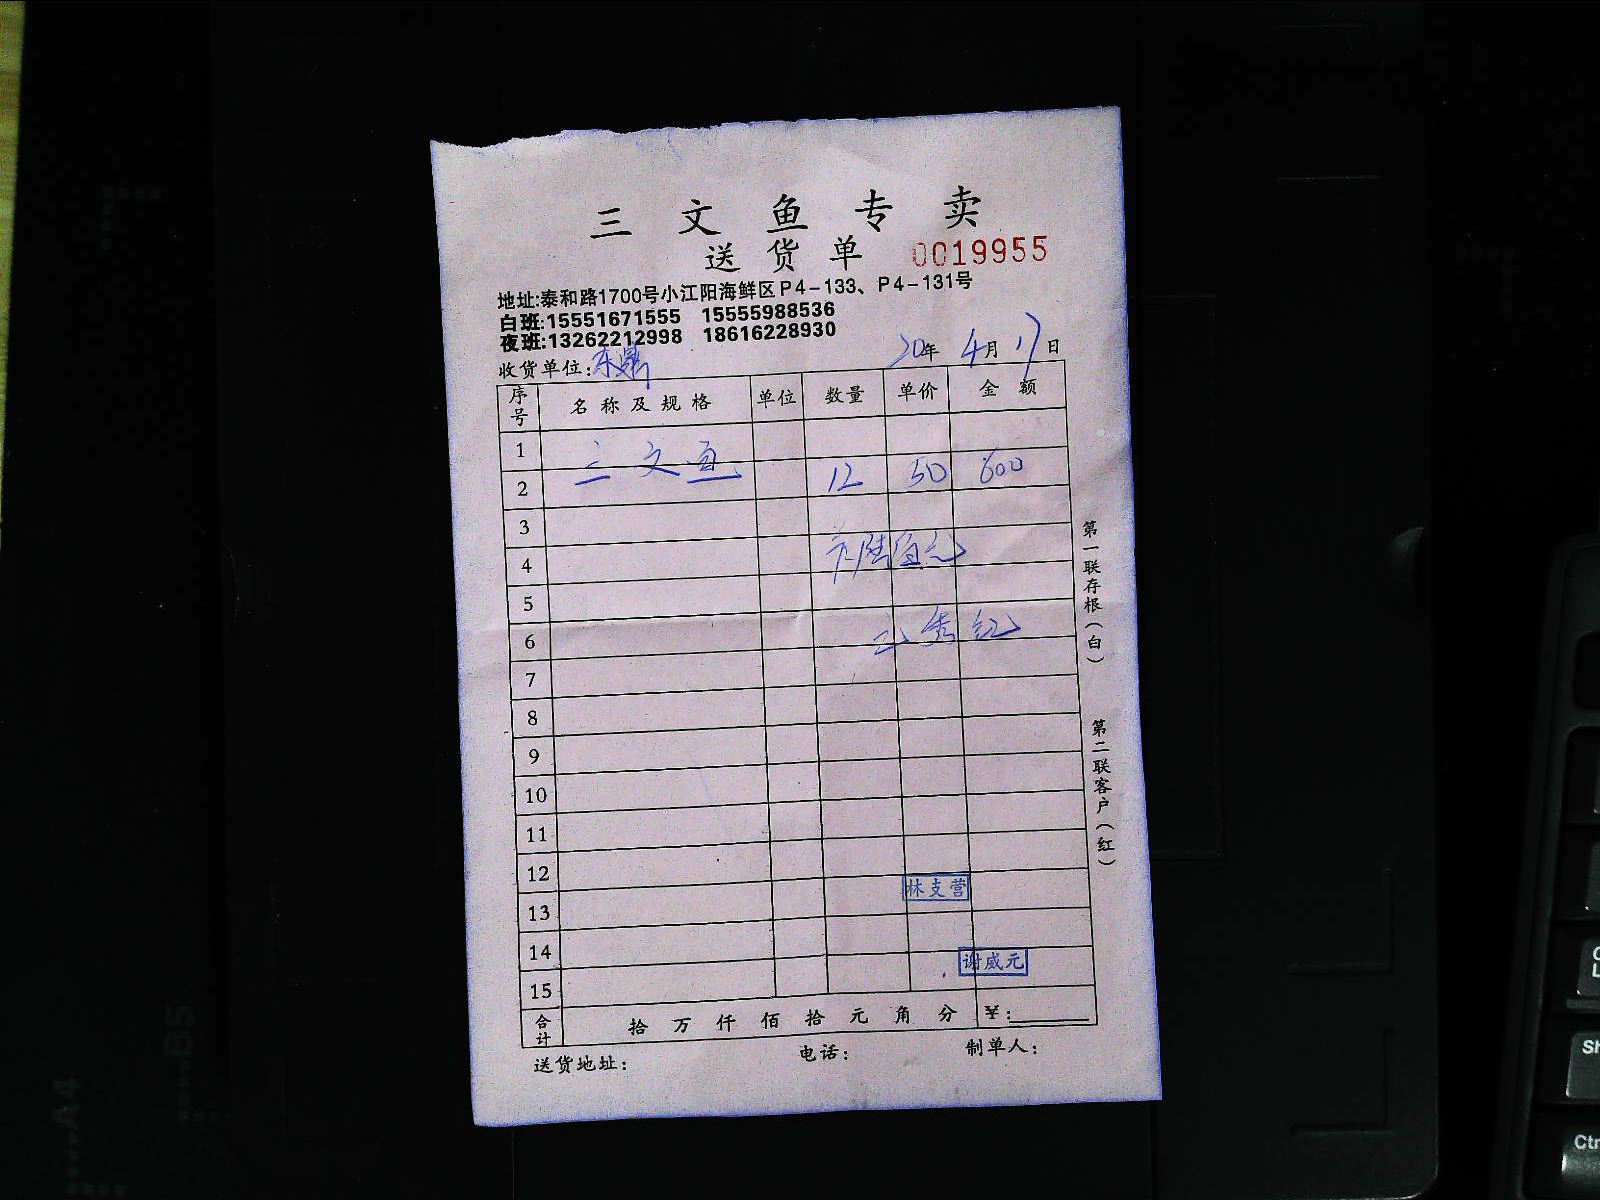 三文鱼专卖
送货单 0019955
地址:泰和路1700号小江阳海鲜区P4-133、P4-131号
白班:15551671555 15555988536
夜班:13262212998 18616228930
收货单位:东鼎 20年4月17日
序号 名称及规格 单位 数量 单价 金额
1
三文鱼 12 50 600
2
3
4 陆佰元
5
6 秀红
7
8
9
10
11
12
林支营
13
14
谢威元
15
合计 拾万仟佰拾元角分 ¥:
送货地址: 电话: 制单人:
第一联存根(白)
第二联客户(红)
A4
B5
Ctr